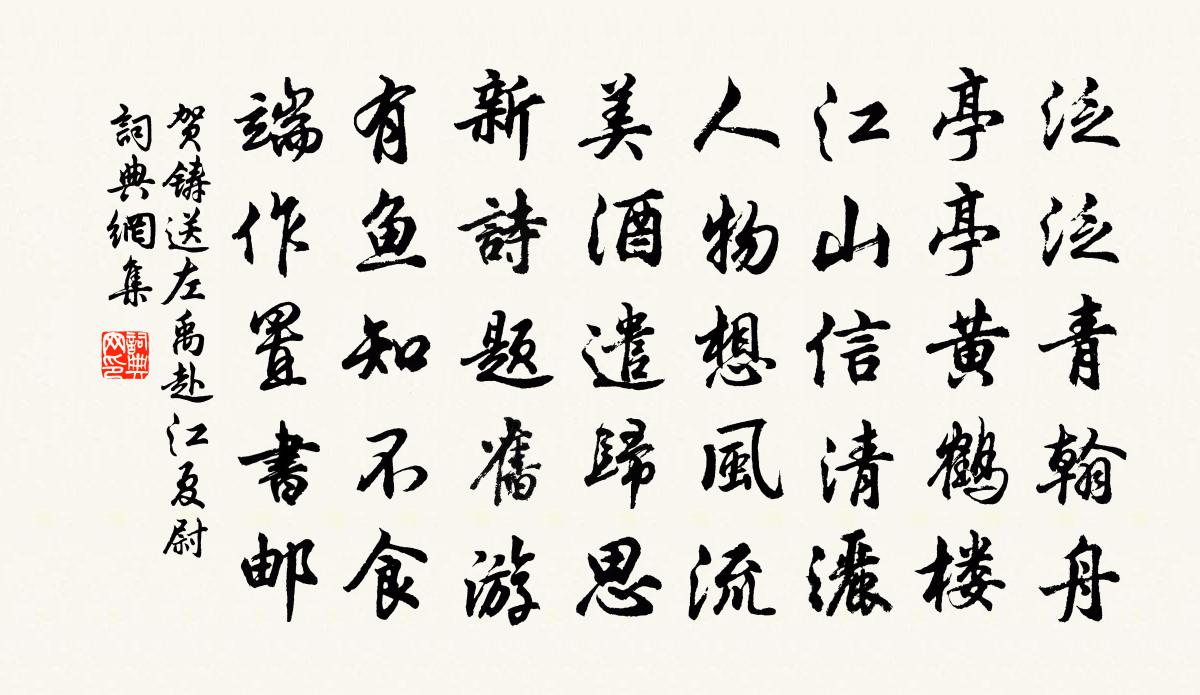 泛泛青翰舟
亭亭黄鹤楼
江山信清灑
人物想風流
美酒遣歸思
新詩题舊游
有鱼知不食
端作置書邮
贺鑄送左禹赴江夏尉
詞典網集
詞典网印